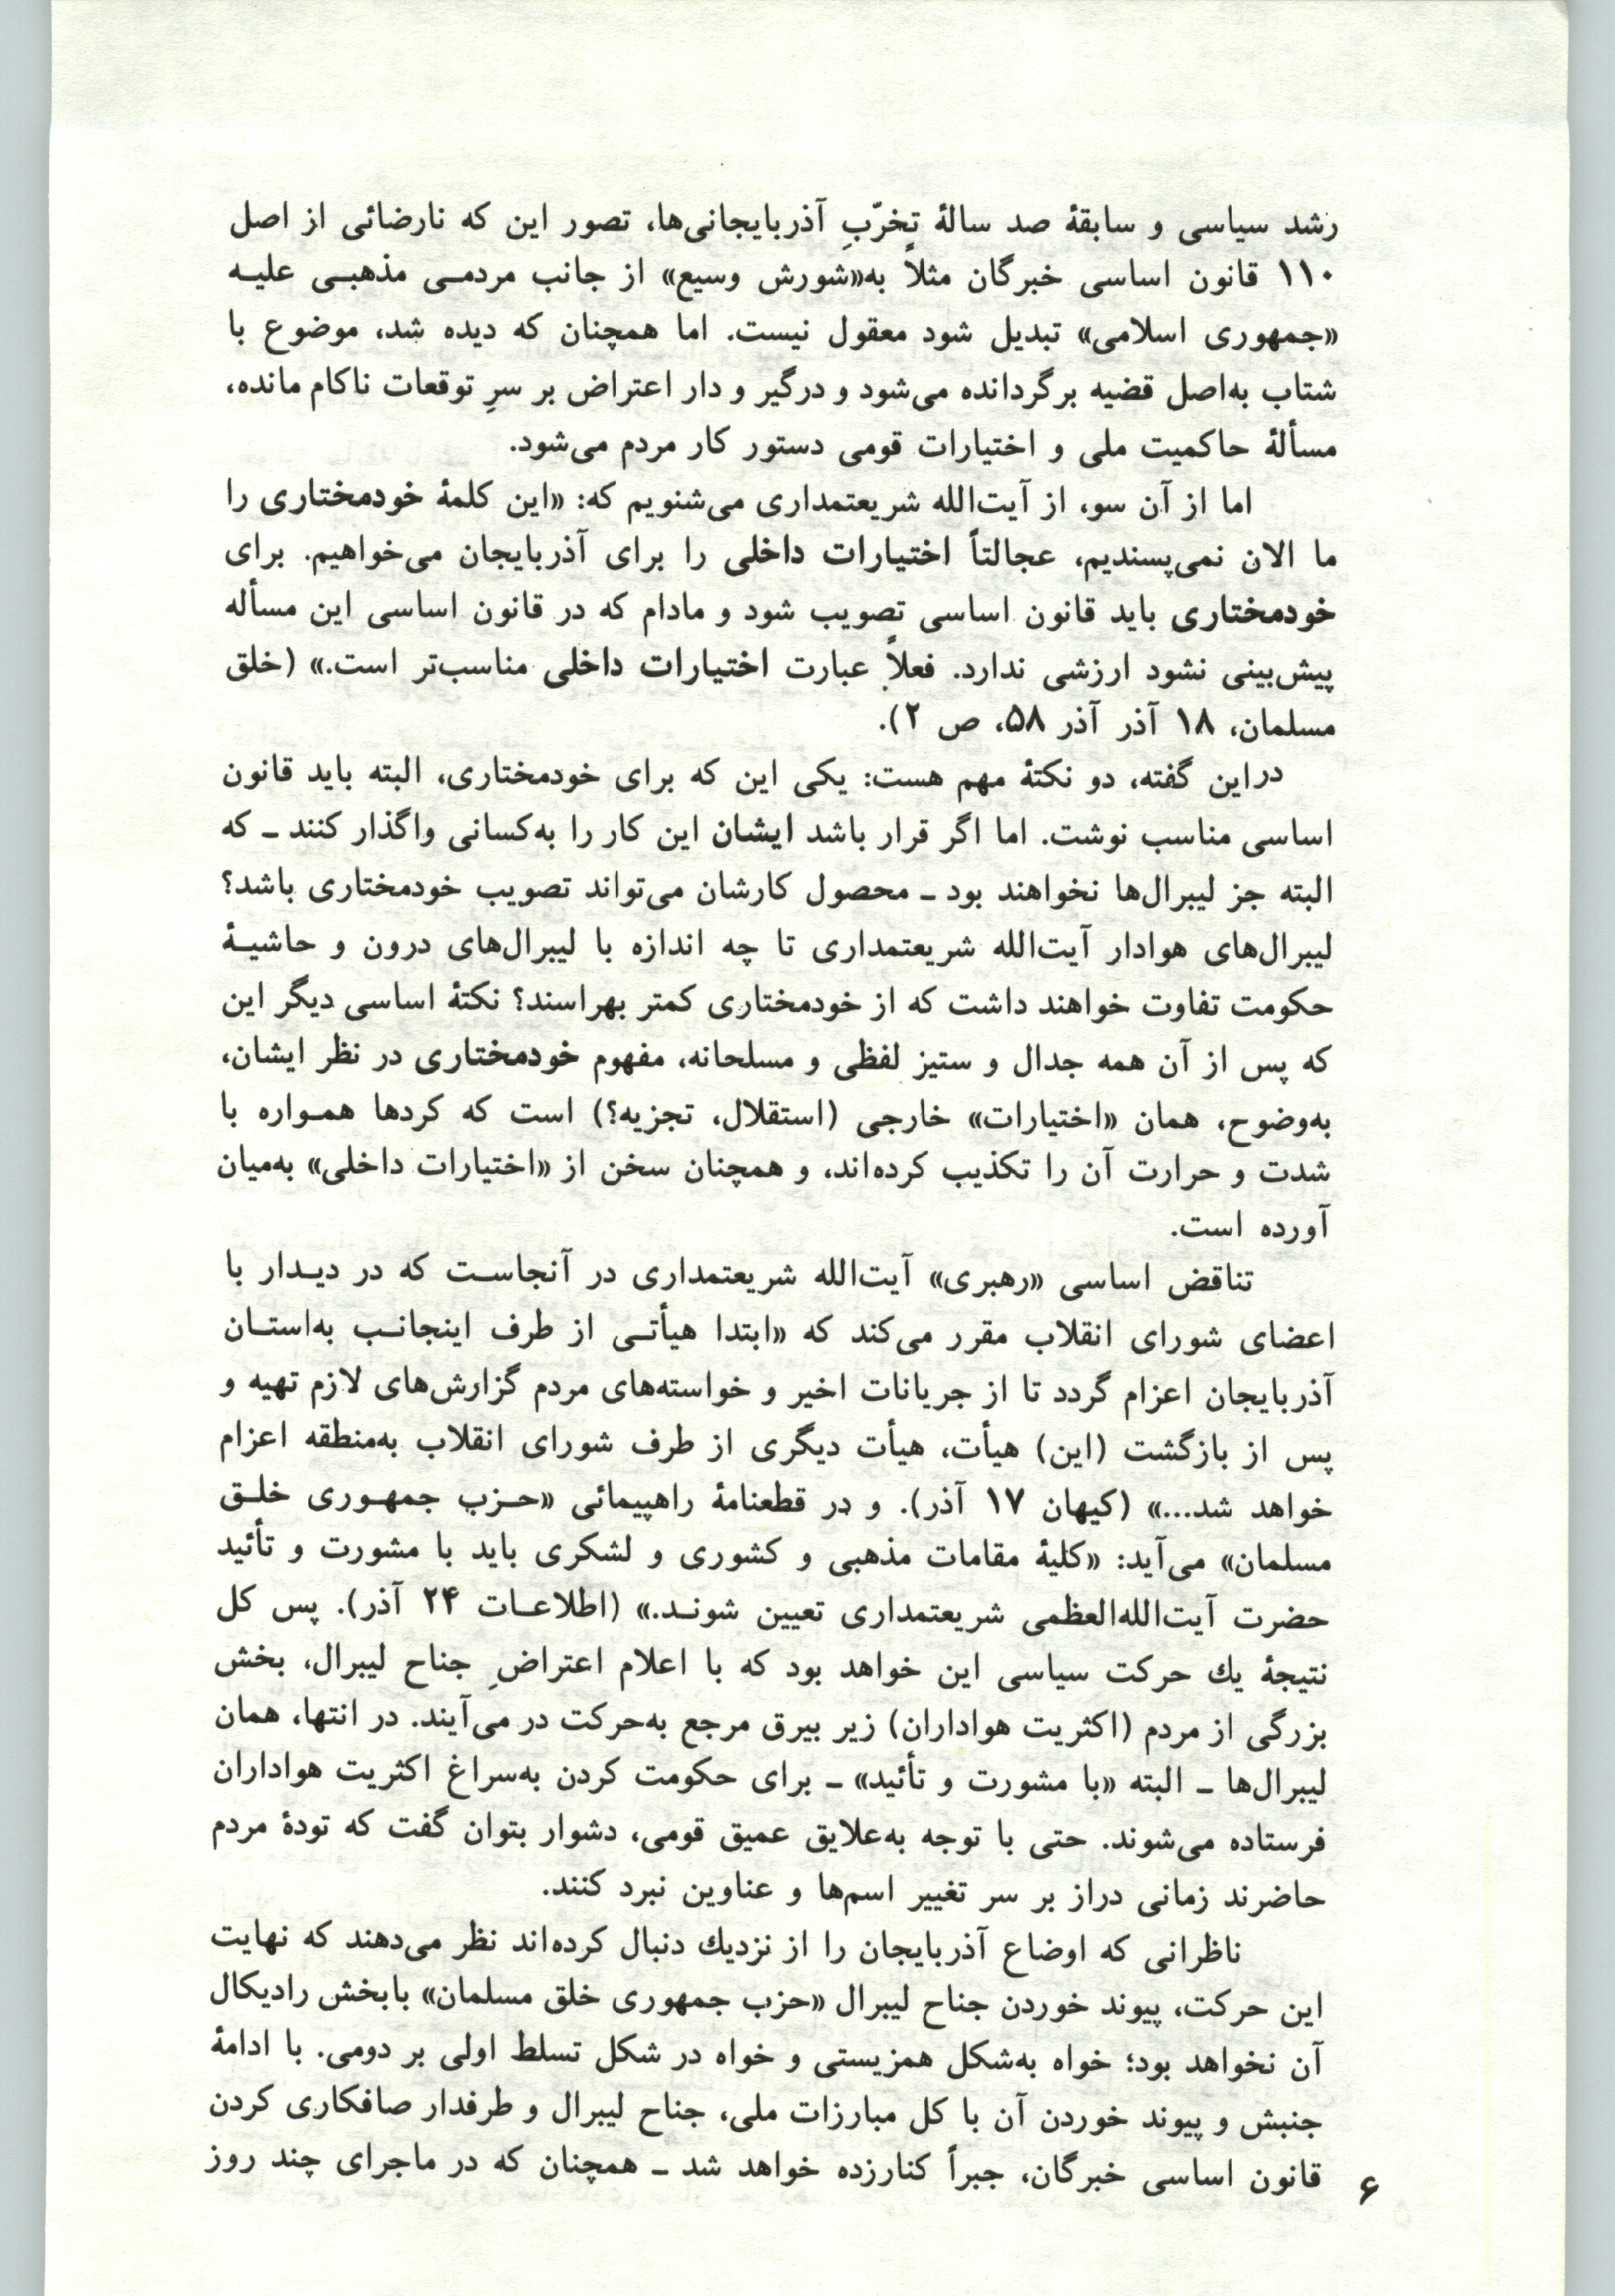 رشد سیاسی و سابقهٔ صد سالهٔ تخرّبِ آذربایجانی‌ها، تصور این که نارضائی از اصل
۱۱۰ قانون اساسی خبرگان مثلاً به«شورش وسیع» از جانب مردمـی مذهبـی علیـه
«جمهوری اسلامی» تبدیل شود معقول نیست. اما همچنان که دیده شد، موضوع با
شتاب به‌اصل قضیه برگردانده می‌شود و درگیر و دار اعتراض بر سرِ توقعات ناکام مانده،
مسألهٔ حاکمیت ملی و اختیارات قومی دستور کار مردم می‌شود.
اما از آن سو، از آیت‌الله شریعتمداری می‌شنویم که: «این کلمهٔ خودمختاری را
ما الان نمی‌پسندیم، عجالتاً اختیارات داخلی را برای آذربایجان می‌خواهیم. برای
خودمختاری باید قانون اساسی تصویب شود و مادام که در قانون اساسی این مسأله
پیش‌بینی نشود ارزشی ندارد. فعلاً عبارت اختیارات داخلی مناسب‌تر است.» (خلق
مسلمان، ۱۸ آذر آذر ۵۸، ص ۲).
دراین گفته، دو نکتهٔ مهم هست: یکی این که برای خودمختاری، البته باید قانون
اساسی مناسب نوشت. اما اگر قرار باشد ایشان این کار را به‌کسانی واگذار کنند ـ که
البته جز لیبرال‌ها نخواهند بود ـ محصول کارشان می‌تواند تصویب خودمختاری باشد؟
لیبرال‌های هوادار آیت‌الله شریعتمداری تا چه اندازه با لیبرال‌های درون و حاشیـهٔ
حکومت تفاوت خواهند داشت که از خودمختاری کمتر بهراسند؟ نکتهٔ اساسی دیگر این
که پس از آن همه جدال و ستیز لفظی و مسلحانه، مفهوم خودمختاری در نظر ایشان،
به‌وضوح، همان «اختیارات» خارجی (استقلال، تجزیه؟) است که کردها همـواره با
شدت و حرارت آن را تکذیب کرده‌اند، و همچنان سخن از «اختیارات داخلی» به‌میان
آورده است.
تناقض اساسی «رهبری» آیت‌الله شریعتمداری در آنجاسـت که در دیـدار با
اعضای شورای انقلاب مقرر می‌کند که «ابتدا هیأتـی از طرف اینجانـب به‌استـان
آذربایجان اعزام گردد تا از جریانات اخیر و خواسته‌های مردم گزارش‌های لازم تهیه و
پس از بازگشت (این) هیأت، هیأت دیگری از طرف شورای انقلاب به‌منطقه اعزام
خواهد شد...» (کیهان ۱۷ آذر). و در قطعنامهٔ راهپیمائی «حـزب جمهـوری خلـق
مسلمان» می‌آید: «کلیهٔ مقامات مذهبی و کشوری و لشکری باید با مشورت و تأئید
حضرت آیت‌الله‌العظمی شریعتمداری تعیین شونـد.» (اطلاعـات ۲۴ آذر). پس کل
نتیجهٔ یك حرکت سیاسی این خواهد بود که با اعلام اعتراضِ جناح لیبرال، بخش
بزرگی از مردم (اکثریت هواداران) زیر بیرق مرجع به‌حرکت در می‌آیند. در انتها، همان
لیبرال‌ها ـ البته «با مشورت و تأئید» ـ برای حکومت کردن به‌سراغ اکثریت هواداران
فرستاده می‌شوند. حتی با توجه به‌علایق عمیق قومی، دشوار بتوان گفت که تودهٔ مردم
حاضرند زمانی دراز بر سر تغییر اسم‌ها و عناوین نبرد کنند.
ناظرانی که اوضاع آذربایجان را از نزدیك دنبال کرده‌اند نظر می‌دهند که نهایت
این حرکت، پیوند خوردن جناح لیبرال «حزب جمهوری خلق مسلمان» بابخش رادیکال
آن نخواهد بود؛ خواه به‌شکل همزیستی و خواه در شکل تسلط اولی بر دومی. با ادامهٔ
جنبش و پیوند خوردن آن با کل مبارزات ملی، جناح لیبرال و طرفدار صافکاری کردن
قانون اساسی خبرگان، جبراً کنارزده خواهد شد ـ همچنان که در ماجرای چند روز
۶